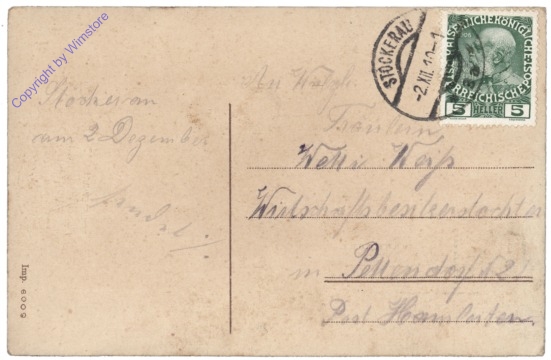 Copyright by Wimstore
STOCKERAU
-2.XII.10-1
KAISERLICHE KÖNIGLICHE ÖSTERREICHISCHE POST
5 HELLER 5
Stockerau
am 2 Dezember
Fräulein
Wetti Weiß
Wirtschaftsbesitzerstochter
in Pettendorf N 2
Post Hausleiten
Imp. 6009